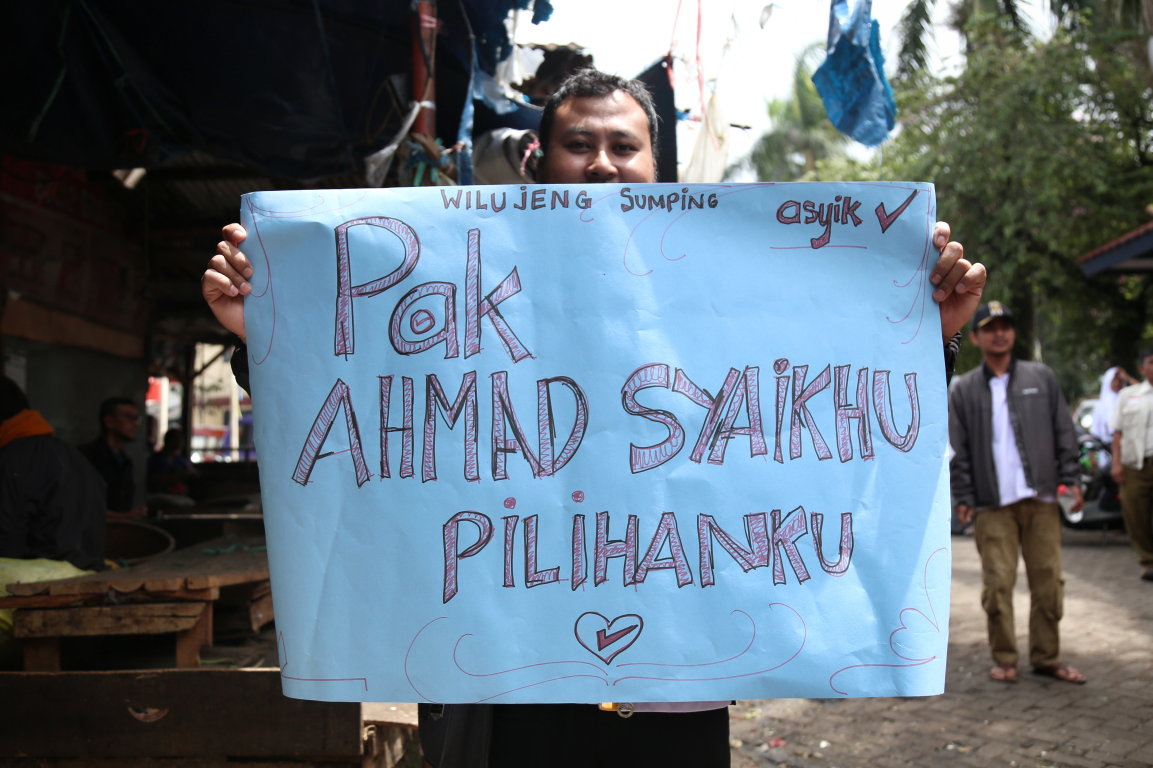 WILUJENG SUMPING
asyik ✓
Pak
AHMAD SYAIKHU
PILIHANKU